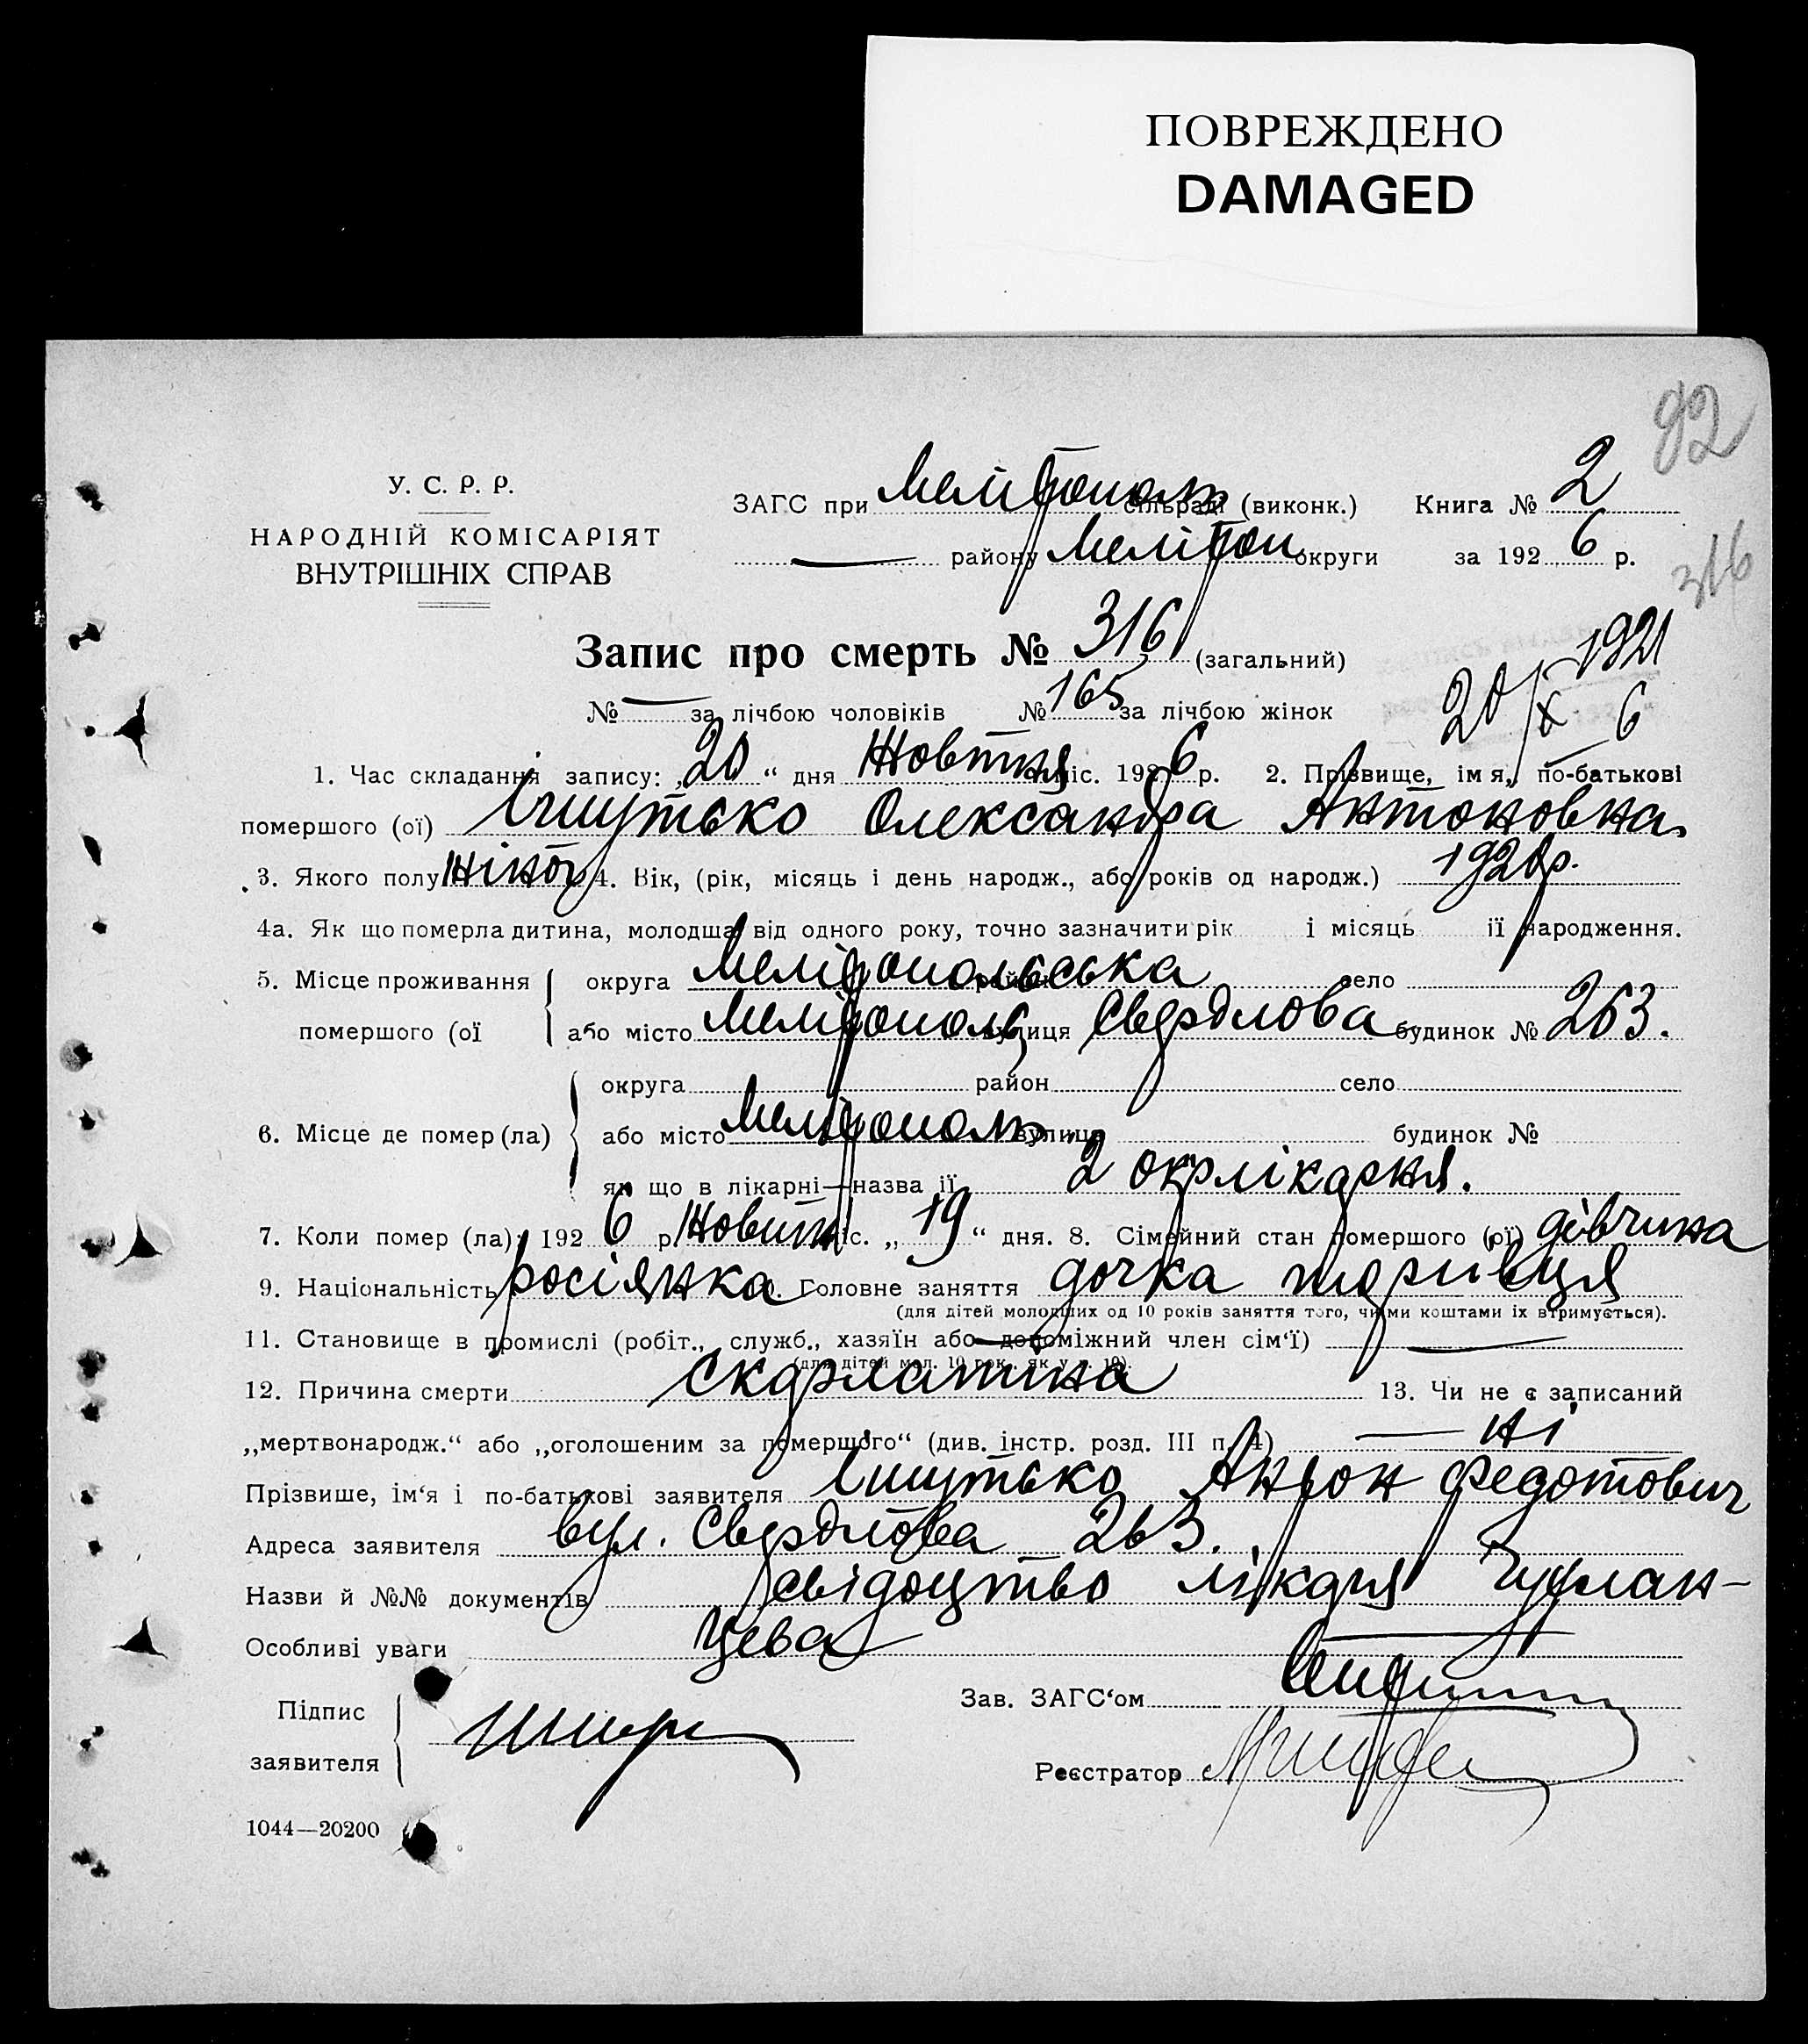 ПОВРЕЖДЕНО
DAMAGED
92
У. С. Р. Р.
НАРОДНІЙ КОМІСАРІЯТ
ВНУТРІШНІХ СПРАВ
ЗАГС при Мелітополь сільраді (виконк.) Книга № 2
— району Меліто́п округи за 192 6 р.
316
Запис про смерть № 316 (загальний)
1921
№ — за лічбою чоловіків № 165 за лічбою жінок
20/X 6
1. Час складання запису: „20“ дня Жовтня міс. 192 6 р. 2. Прізвище, ім'я, по-батькові
помершого (ої) Ішутько Олександра Антоновна
3. Якого полу жіноч 4. Вік, (рік, місяць і день народж., або років од народж.) 1920 р.
4а. Як що померла дитина, молодша від одного року, точно зазначити рік і місяць її народження.
5. Місце проживання округа Мелітопольська район село
помершого (ої або місто Мелітополь вулиця Свердлова будинок № 263.
округа район село
6. Місце де помер (ла) або місто Мелітополь вулиця будинок №
як що в лікарні—назва її 2 окрлікарня.
7. Коли помер (ла): 192 6 р. Жовтн міс. „19“ дня. 8. Сімейний стан помершого (ої) дівчина
9. Національність росіянка 10. Головне заняття дочка торгівця
(для дітей молодших од 10 років заняття того, чиїми коштами їх втримується).
11. Становище в промислі (робіт., служб., хазяїн або допоміжний член сім'ї) —
(для дітей мол. 10 рок. як у п. 10).
12. Причина смерти скарлатина 13. Чи не є записаний
„мертвонародж.“ або „оголошеним за помершого“ (див. інстр. розд. III п. 4) — ні
Прізвише, ім'я і по-батькові заявителя Ішутько Антон Федотович
Адреса заявителя вул. Свердлова 263.
Назви й №№ документів свідоцтво лікаря
Особливі уваги цева
Підпис
заявителя
Зав. ЗАГС'ом
Реєстратор
1044—20200